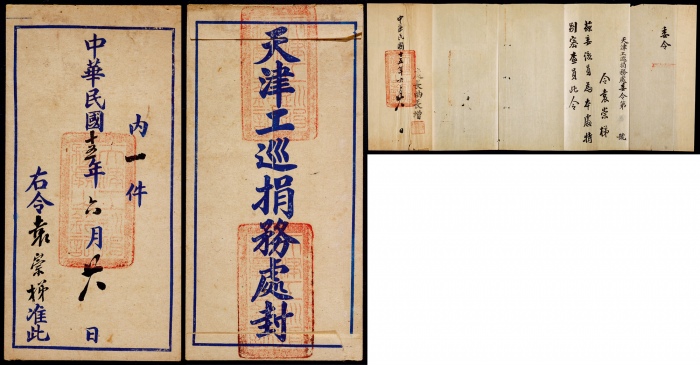 內一件
中華民國十五年六月廿八日
右令袁崇梯准此
天津工巡捐務處封
委令
天津工巡捐務處委令第 號
令袁崇梯
茲委該員為本處捐
別密查員此令
中華民國十五年六月廿八日